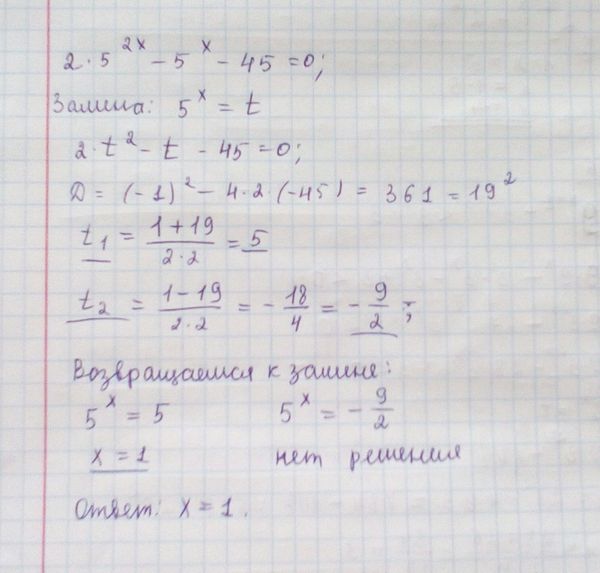 2·5^{2x} - 5^x - 45 = 0;
Замена: 5^x = t
2·t^2 - t - 45 = 0;
D = (-1)^2 - 4·2·(-45) = 361 = 19^2
t_1 = \frac{1+19}{2·2} = 5
t_2 = \frac{1-19}{2·2} = -\frac{18}{4} = -\frac{9}{2};
Возвращаемся к замене:
5^x = 5 5^x = -\frac{9}{2}
x = 1 нет решения
Ответ: x = 1.